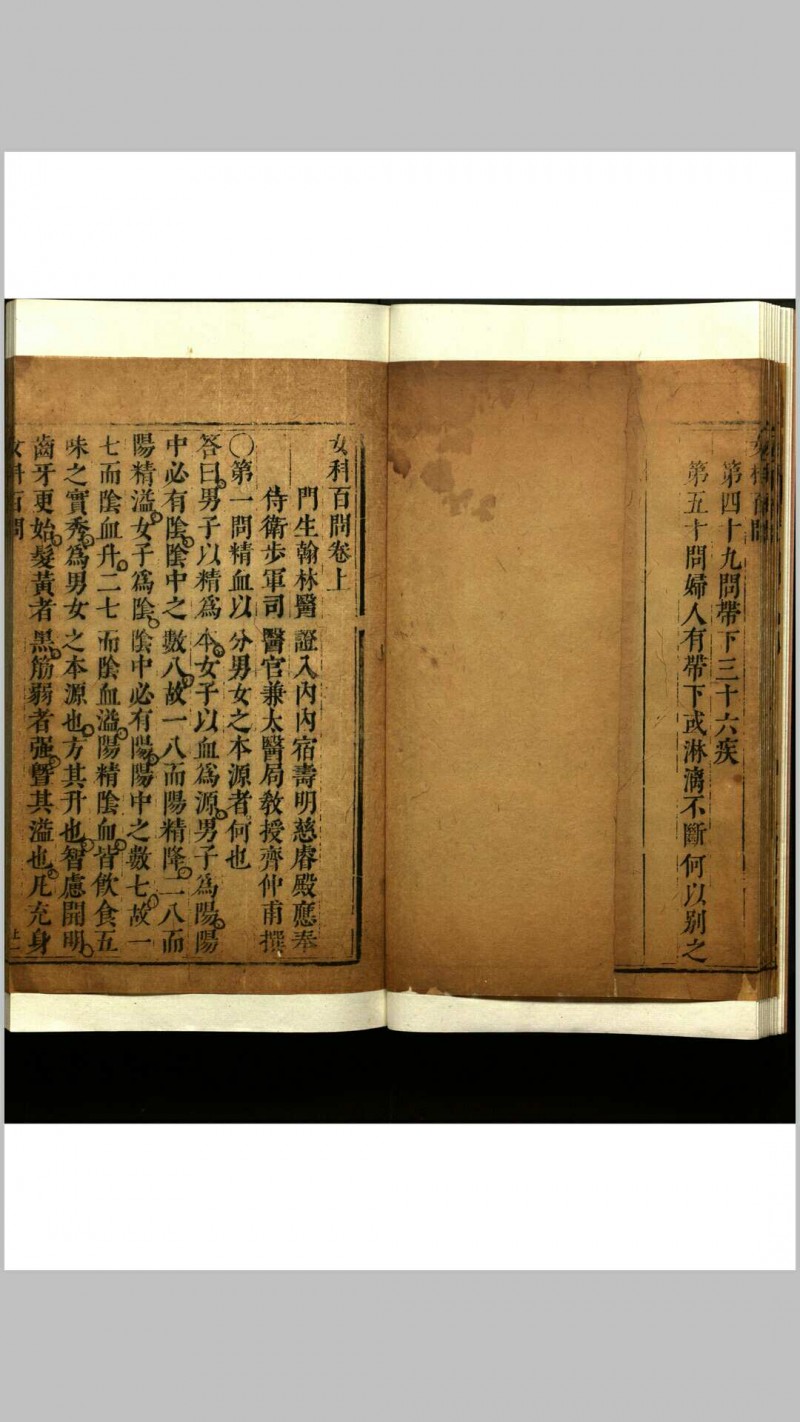 第四十九問帶下三十六疾
第五十問婦人有帶下或淋漓不斷何以別之
女科百問卷上
門生翰林醫證入內內宿壽明慈睿殿應奉
侍衛步軍司醫官兼太醫局教授齊仲甫撰
〇第一問精血以分男女之本源者何也
答曰男子以精爲本女子以血爲源男子爲陽陽
中必有陰陰中之數八故一八而陽精降二八而
陽精溢女子爲陰陰中必有陽陽中之數七故一
七而陰血升二七而陰血溢陽精陰血皆飲食五
味之實秀爲男女之本源也方其升也智慮開明
齒牙更始髮黃者黑筋弱者强暨其溢也凡充身